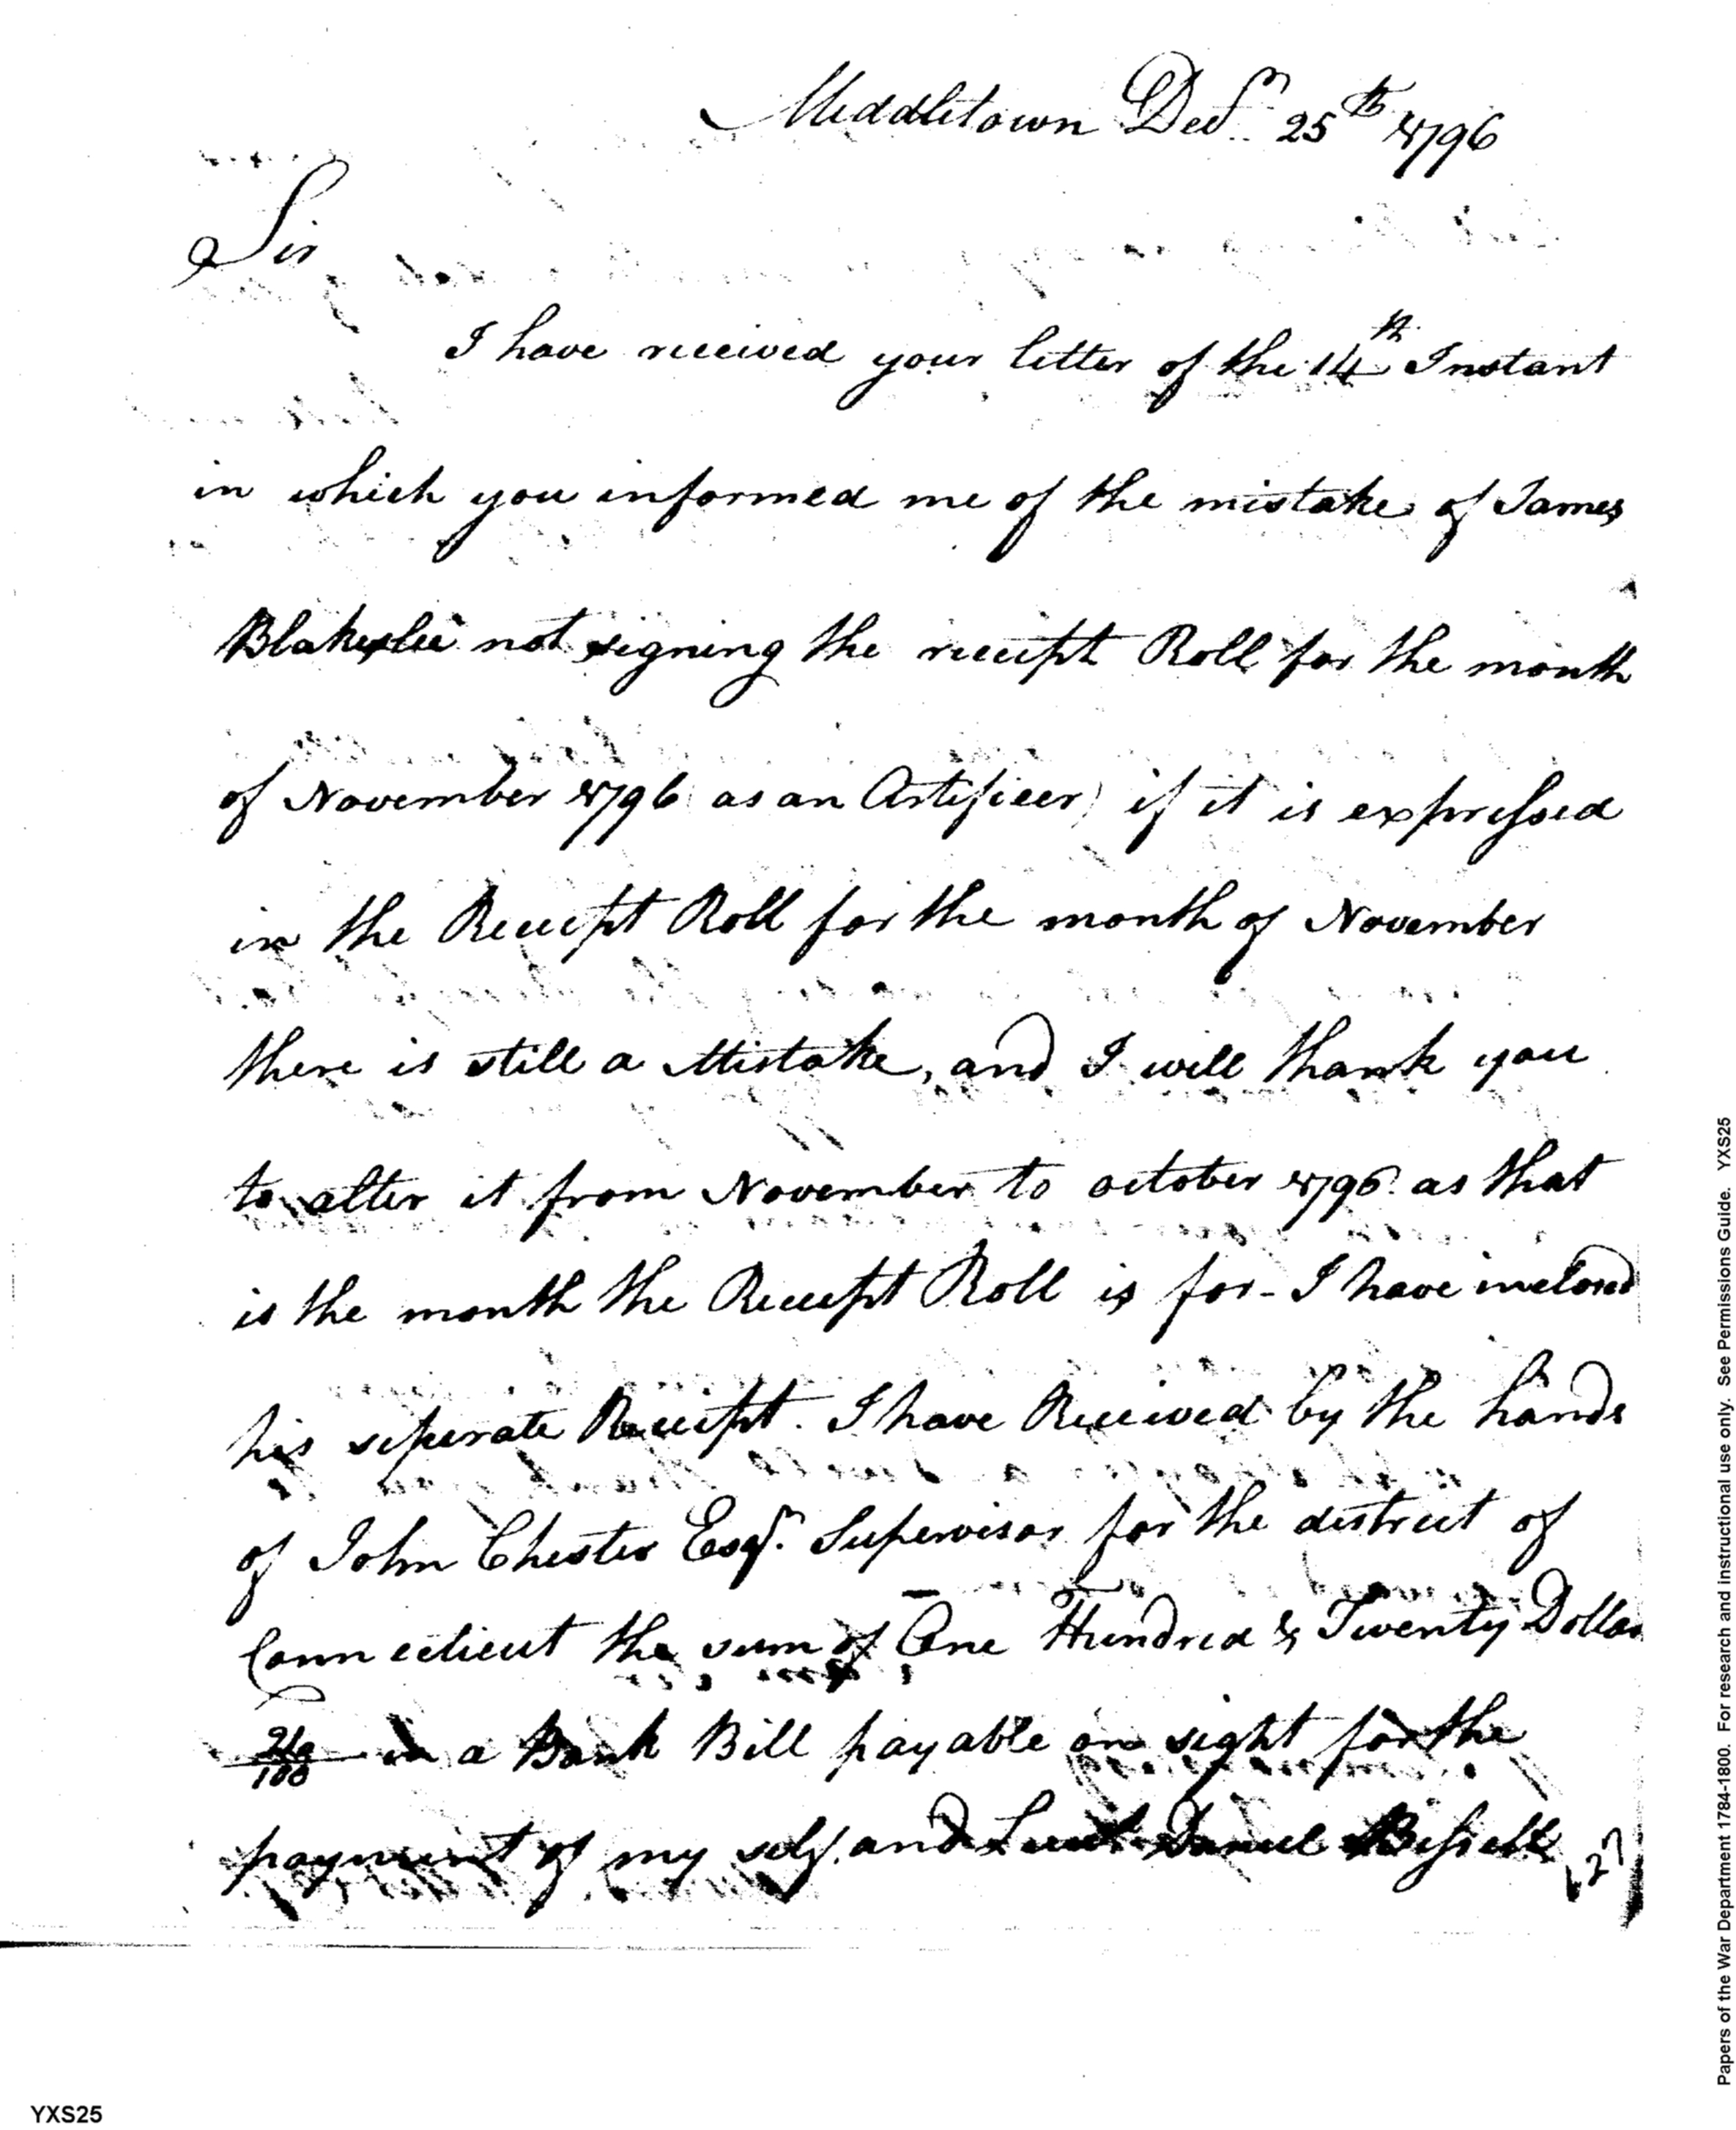 Middletown Decr 25th 1796
Sir
I have received your letter of the 14th Instant
in which you informed me of the mistake of James
Blakeslee not signing the receipt Roll for the month
of November 1796 as an Artificer) if it is expressed
in the Receipt Roll for the month of November
there is still a Mistake, and I will thank you
to alter it from November to october 1796 as that
is the month the Receipt Roll is for - I have inclosed
his seperate Receipt. I have Received by the hands
of John Chester Esqr. Supervisor for the district of
Connecticut the sum of One Hundred & Twenty Dollar
/100 in a Bank Bill payable on sight for the
payment of my self. and Lieut Daniel Bissell
127
YXS25
Papers of the War Department 1784-1800. For research and instructional use only. See Permissions Guide. YXS25